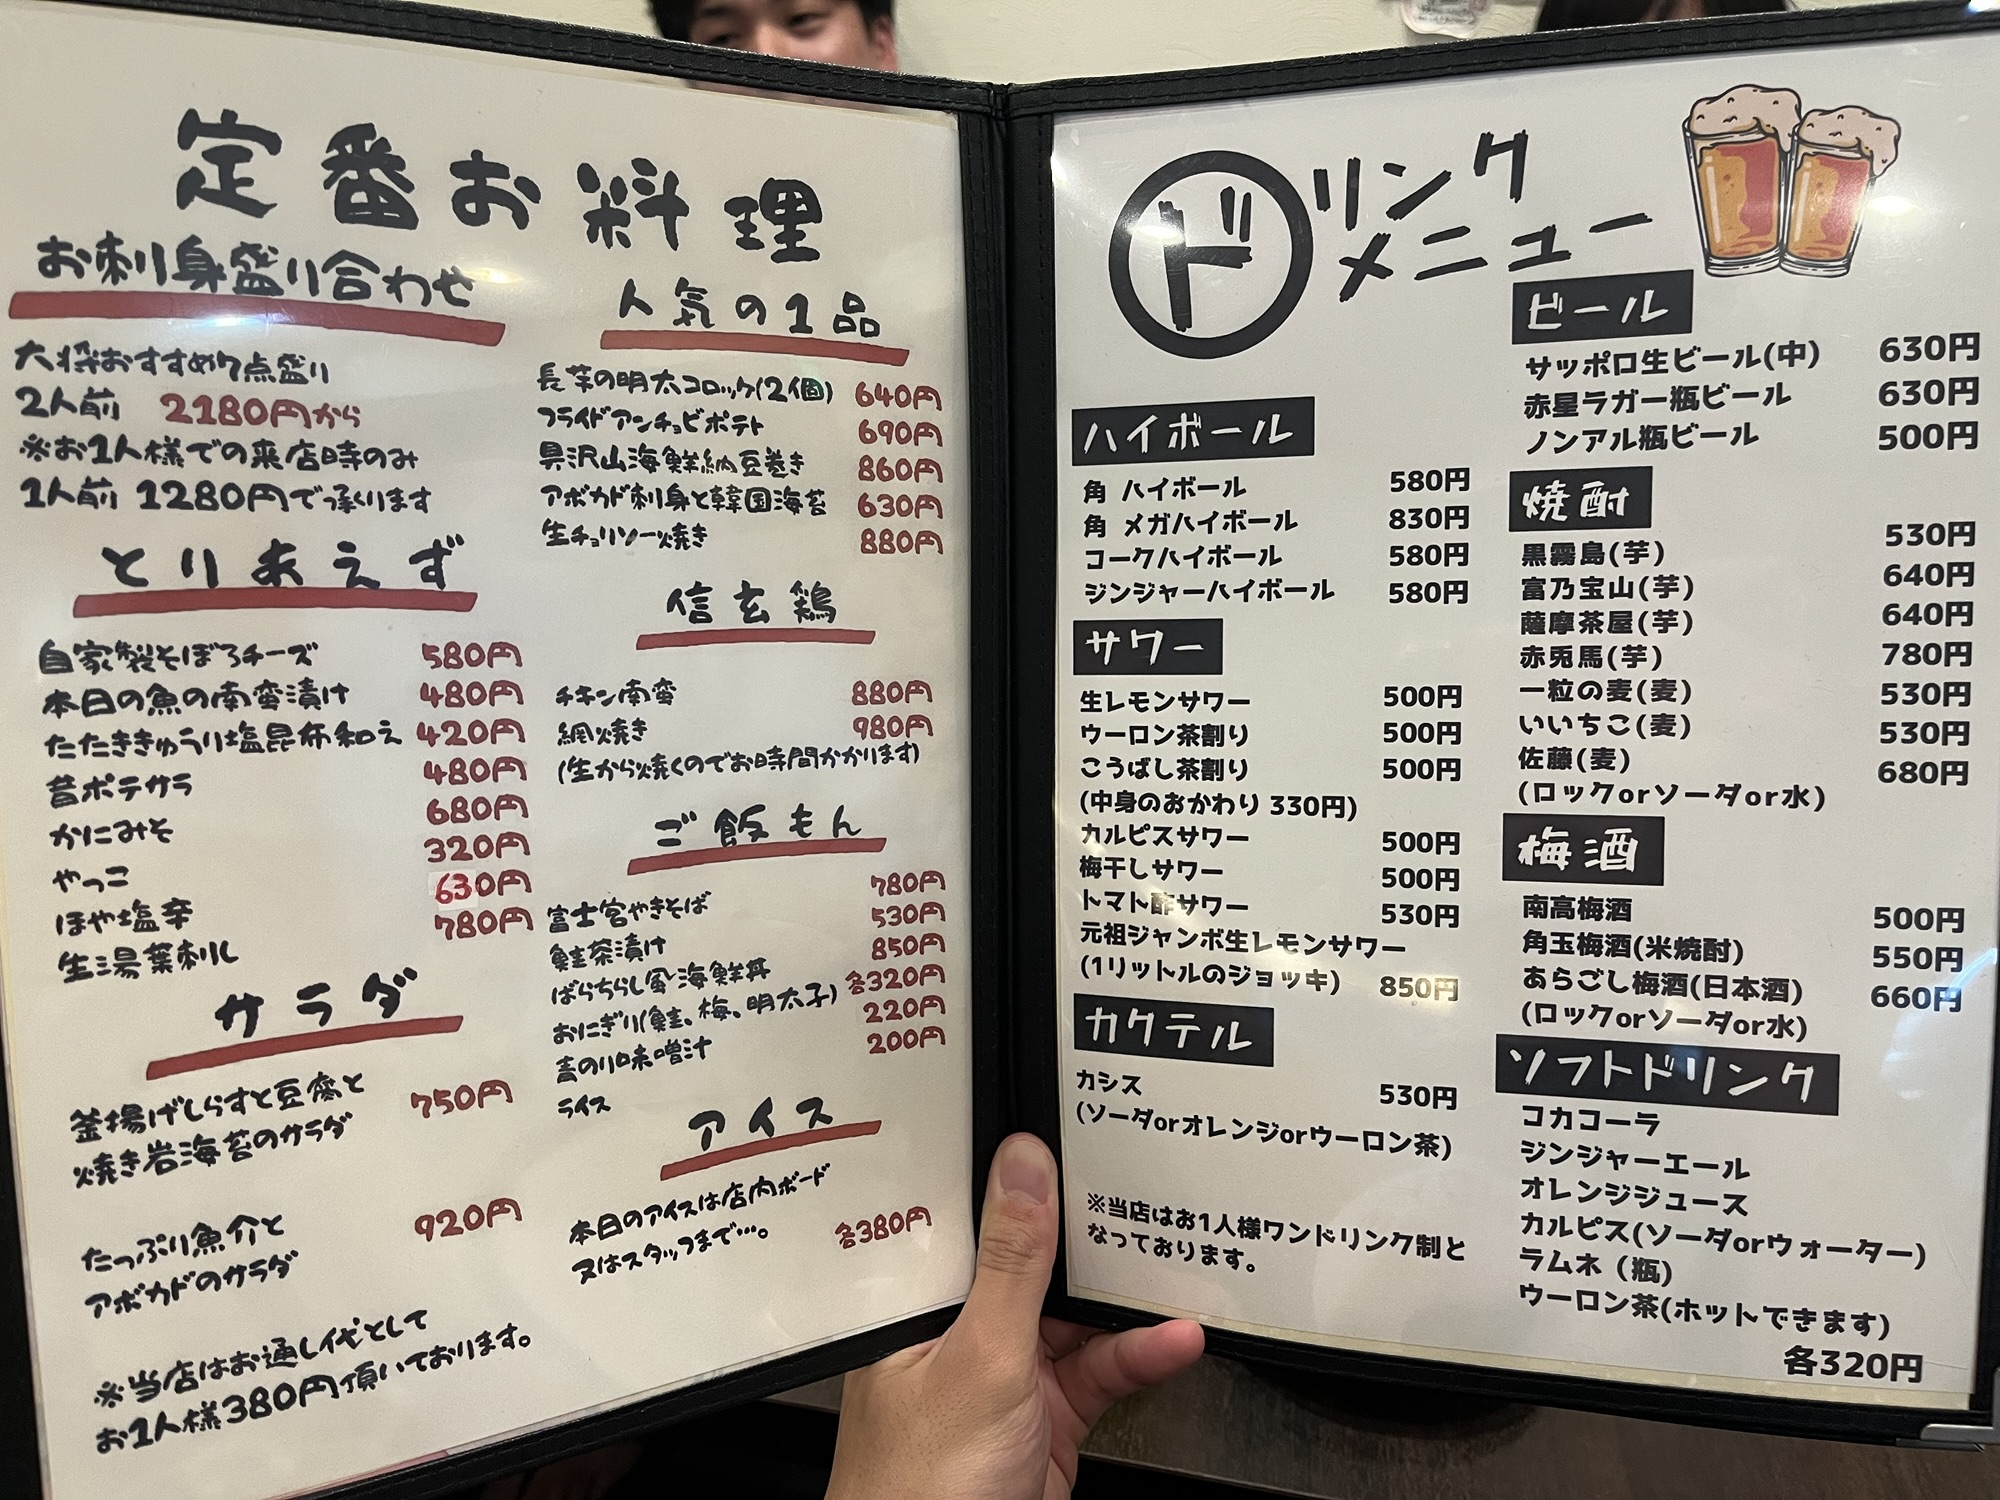 定番お料理
お刺身盛り合わせ
大将おすすめ7点盛り
2人前 2180円から
※お1人様での来店時のみ
1人前 1280円で承ります
とりあえず
自家製そぼろチーズ 580円
本日の魚の南蛮漬け 480円
たたききゅうり塩昆布和え 420円
昔ポテサラ 480円
かにみそ 680円
やっこ 320円
ほや塩辛 630円
生湯葉刺し 780円
サラダ
釜揚げしらすと豆腐と 750円
焼き岩海苔のサラダ
たっぷり魚介と 920円
アボカドのサラダ
※当店はお通し代として
お1人様380円頂いております。
人気の1品
長芋の明太コロッケ(2個) 640円
フライドアンチョビポテト 690円
具沢山海鮮納豆巻き 860円
アボカド刺身と韓国海苔 630円
生チョリソー焼き 880円
信玄鶏
チキン南蛮 880円
網焼き 980円
(生から焼くのでお時間かかります)
ご飯もん
富士宮やきそば 780円
鮭茶漬け 530円
ばらちらし風海鮮丼 850円
おにぎり(鮭、梅、明太子) 各320円
青のり味噌汁 220円
ライス 200円
アイス
本日のアイスは店内ボード
又はスタッフまで…。 各380円
ドリンク
メニュー
ハイボール
角 ハイボール 580円
角 メガハイボール 830円
コークハイボール 580円
ジンジャーハイボール 580円
サワー
生レモンサワー 500円
ウーロン茶割り 500円
こうばし茶割り 500円
(中身のおかわり 330円)
カルピスサワー 500円
梅干しサワー 500円
トマト酢サワー 530円
元祖ジャンボ生レモンサワー
(1リットルのジョッキ) 850円
カクテル
カシス 530円
(ソーダorオレンジorウーロン茶)
※当店はお1人様ワンドリンク制と
なっております。
ビール
サッポロ生ビール(中) 630円
赤星ラガー瓶ビール 630円
ノンアル瓶ビール 500円
焼酎
黒霧島(芋) 530円
富乃宝山(芋) 640円
薩摩茶屋(芋) 640円
赤兎馬(芋) 780円
一粒の麦(麦) 530円
いいちこ(麦) 530円
佐藤(麦) 680円
(ロックorソーダor水)
梅酒
南高梅酒 500円
角玉梅酒(米焼酎) 550円
あらごし梅酒(日本酒) 660円
(ロックorソーダor水)
ソフトドリンク
コカコーラ
ジンジャーエール
オレンジジュース
カルピス(ソーダorウォーター)
ラムネ（瓶)
ウーロン茶(ホットできます)
各320円